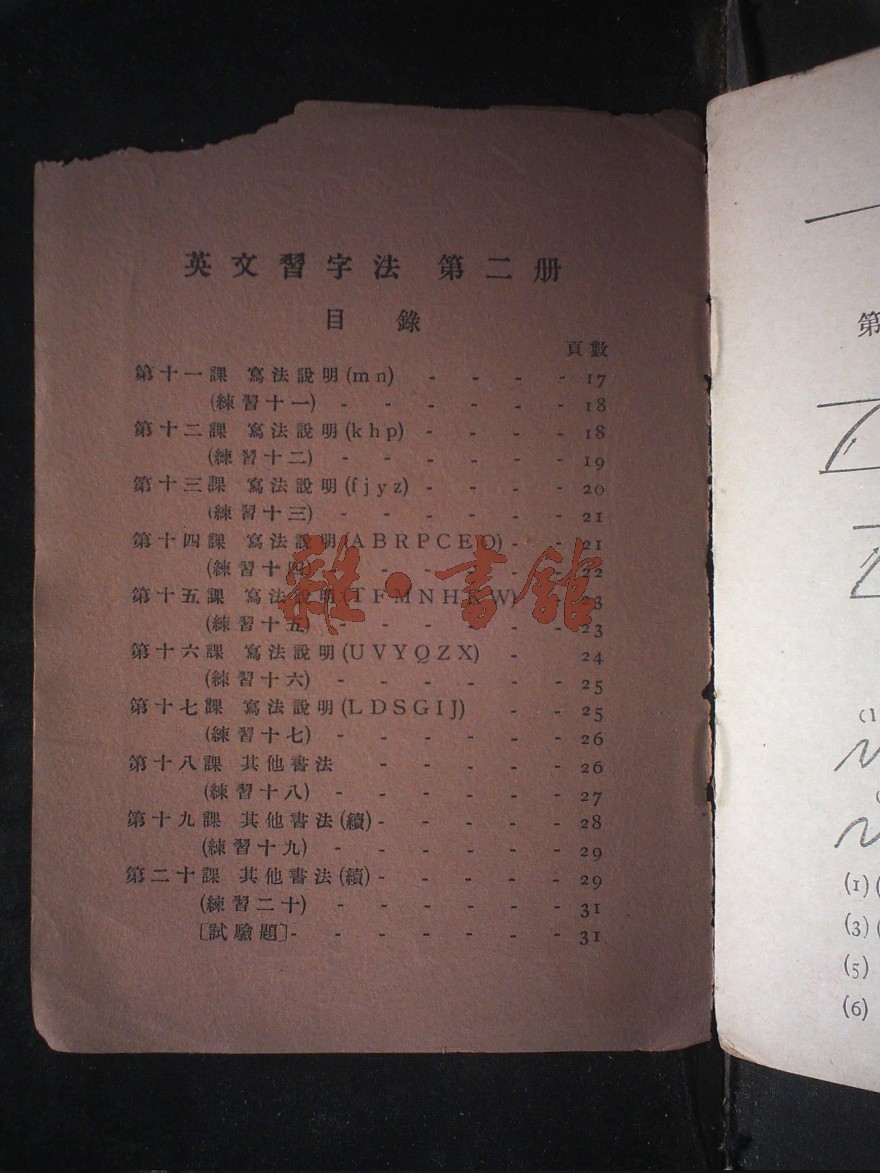 英文習字法 第二册
目錄
頁數
第十一課 寫法說明(m n) - - - - 17
(練習十一) - - - - - - 18
第十二課 寫法說明(k h p) - - - - 18
(練習十二) - - - - - - 19
第十三課 寫法說明(f j y z) - - - - 20
(練習十三) - - - - - - 21
第十四課 寫法說明(A B R P C E O) - - 21
(練習十四) - - - - - - 22
第十五課 寫法說明(T F M N H K W)
(練習十五) - - - - - - 23
第十六課 寫法說明(U V Y Q Z X) - 24
(練習十六) - - - - - - 25
第十七課 寫法說明(L D S G I J) - - 25
(練習十七) - - - - - - 26
第十八課 其他書法 - - - - - 26
(練習十八) - - - - - - 27
第十九課 其他書法(續) - - - - - 28
(練習十九) - - - - - - 29
第二十課 其他書法(續) - - - - - 29
(練習二十) - - - - - - 31
[試驗題] - - - - - - - 31
雜·書館
第
(1
(1)(
(3)(
(5)
(6)